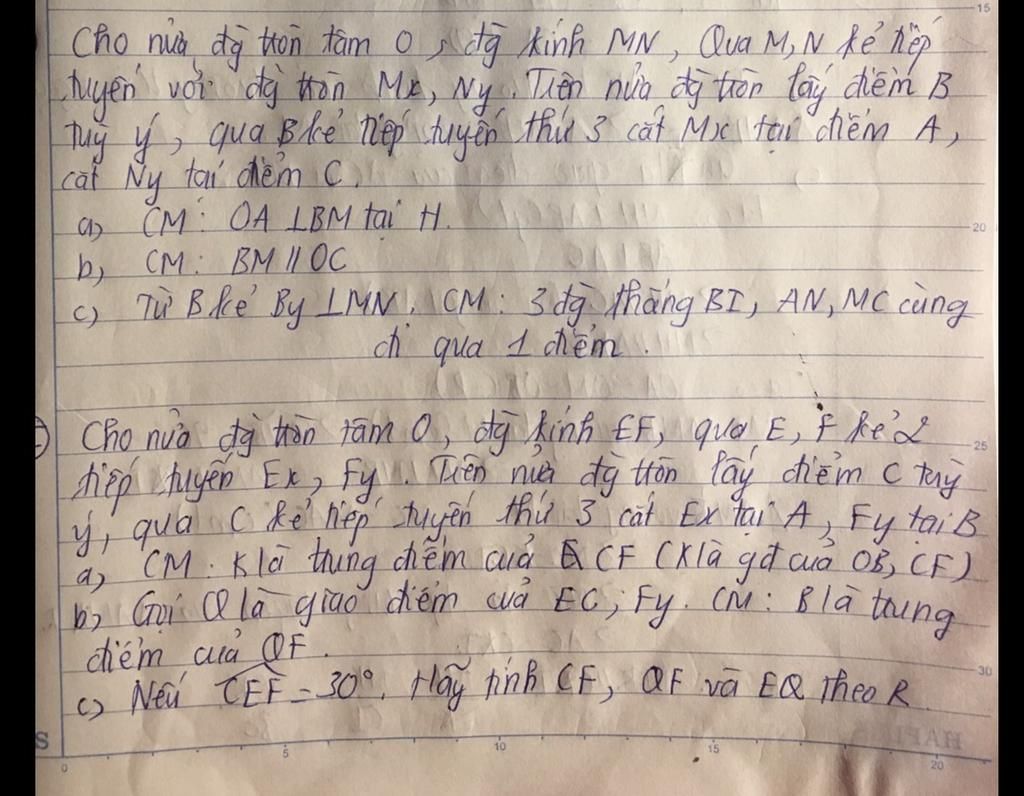 Cho nửa đg tròn tâm O, đg kính MN, Qua M, N kẻ tiếp
tuyến với đg tròn Mx, Ny. Trên nửa đg tròn lấy điểm B
tuỳ ý, qua B kẻ tiếp tuyến thứ 3 cắt Mx tại điểm A,
cắt Ny tại điểm C.
a) CM: OA ⊥ BM tại H.
b) CM: BM // OC
c) Từ B kẻ By ⊥ MN. CM: 3 đg thẳng BI, AN, MC cùng
đi qua 1 điểm.
Cho nửa đg tròn tâm O, đg kính EF, qua E, F kẻ 2
tiếp tuyến Ex, Fy. Trên nửa đg tròn lấy điểm C tuỳ
ý, qua C kẻ tiếp tuyến thứ 3 cắt Ex tại A, Fy tại B
a) CM: K là trung điểm của CF (K là gđ của OB, CF)
b) Gọi Q là giao điểm của EC, Fy. CM: B là trung
điểm của QF.
c) Nếu CEF = 30°. Hãy tính CF, QF và EQ theo R
15
20
25
30
S
0 5 10 15 20